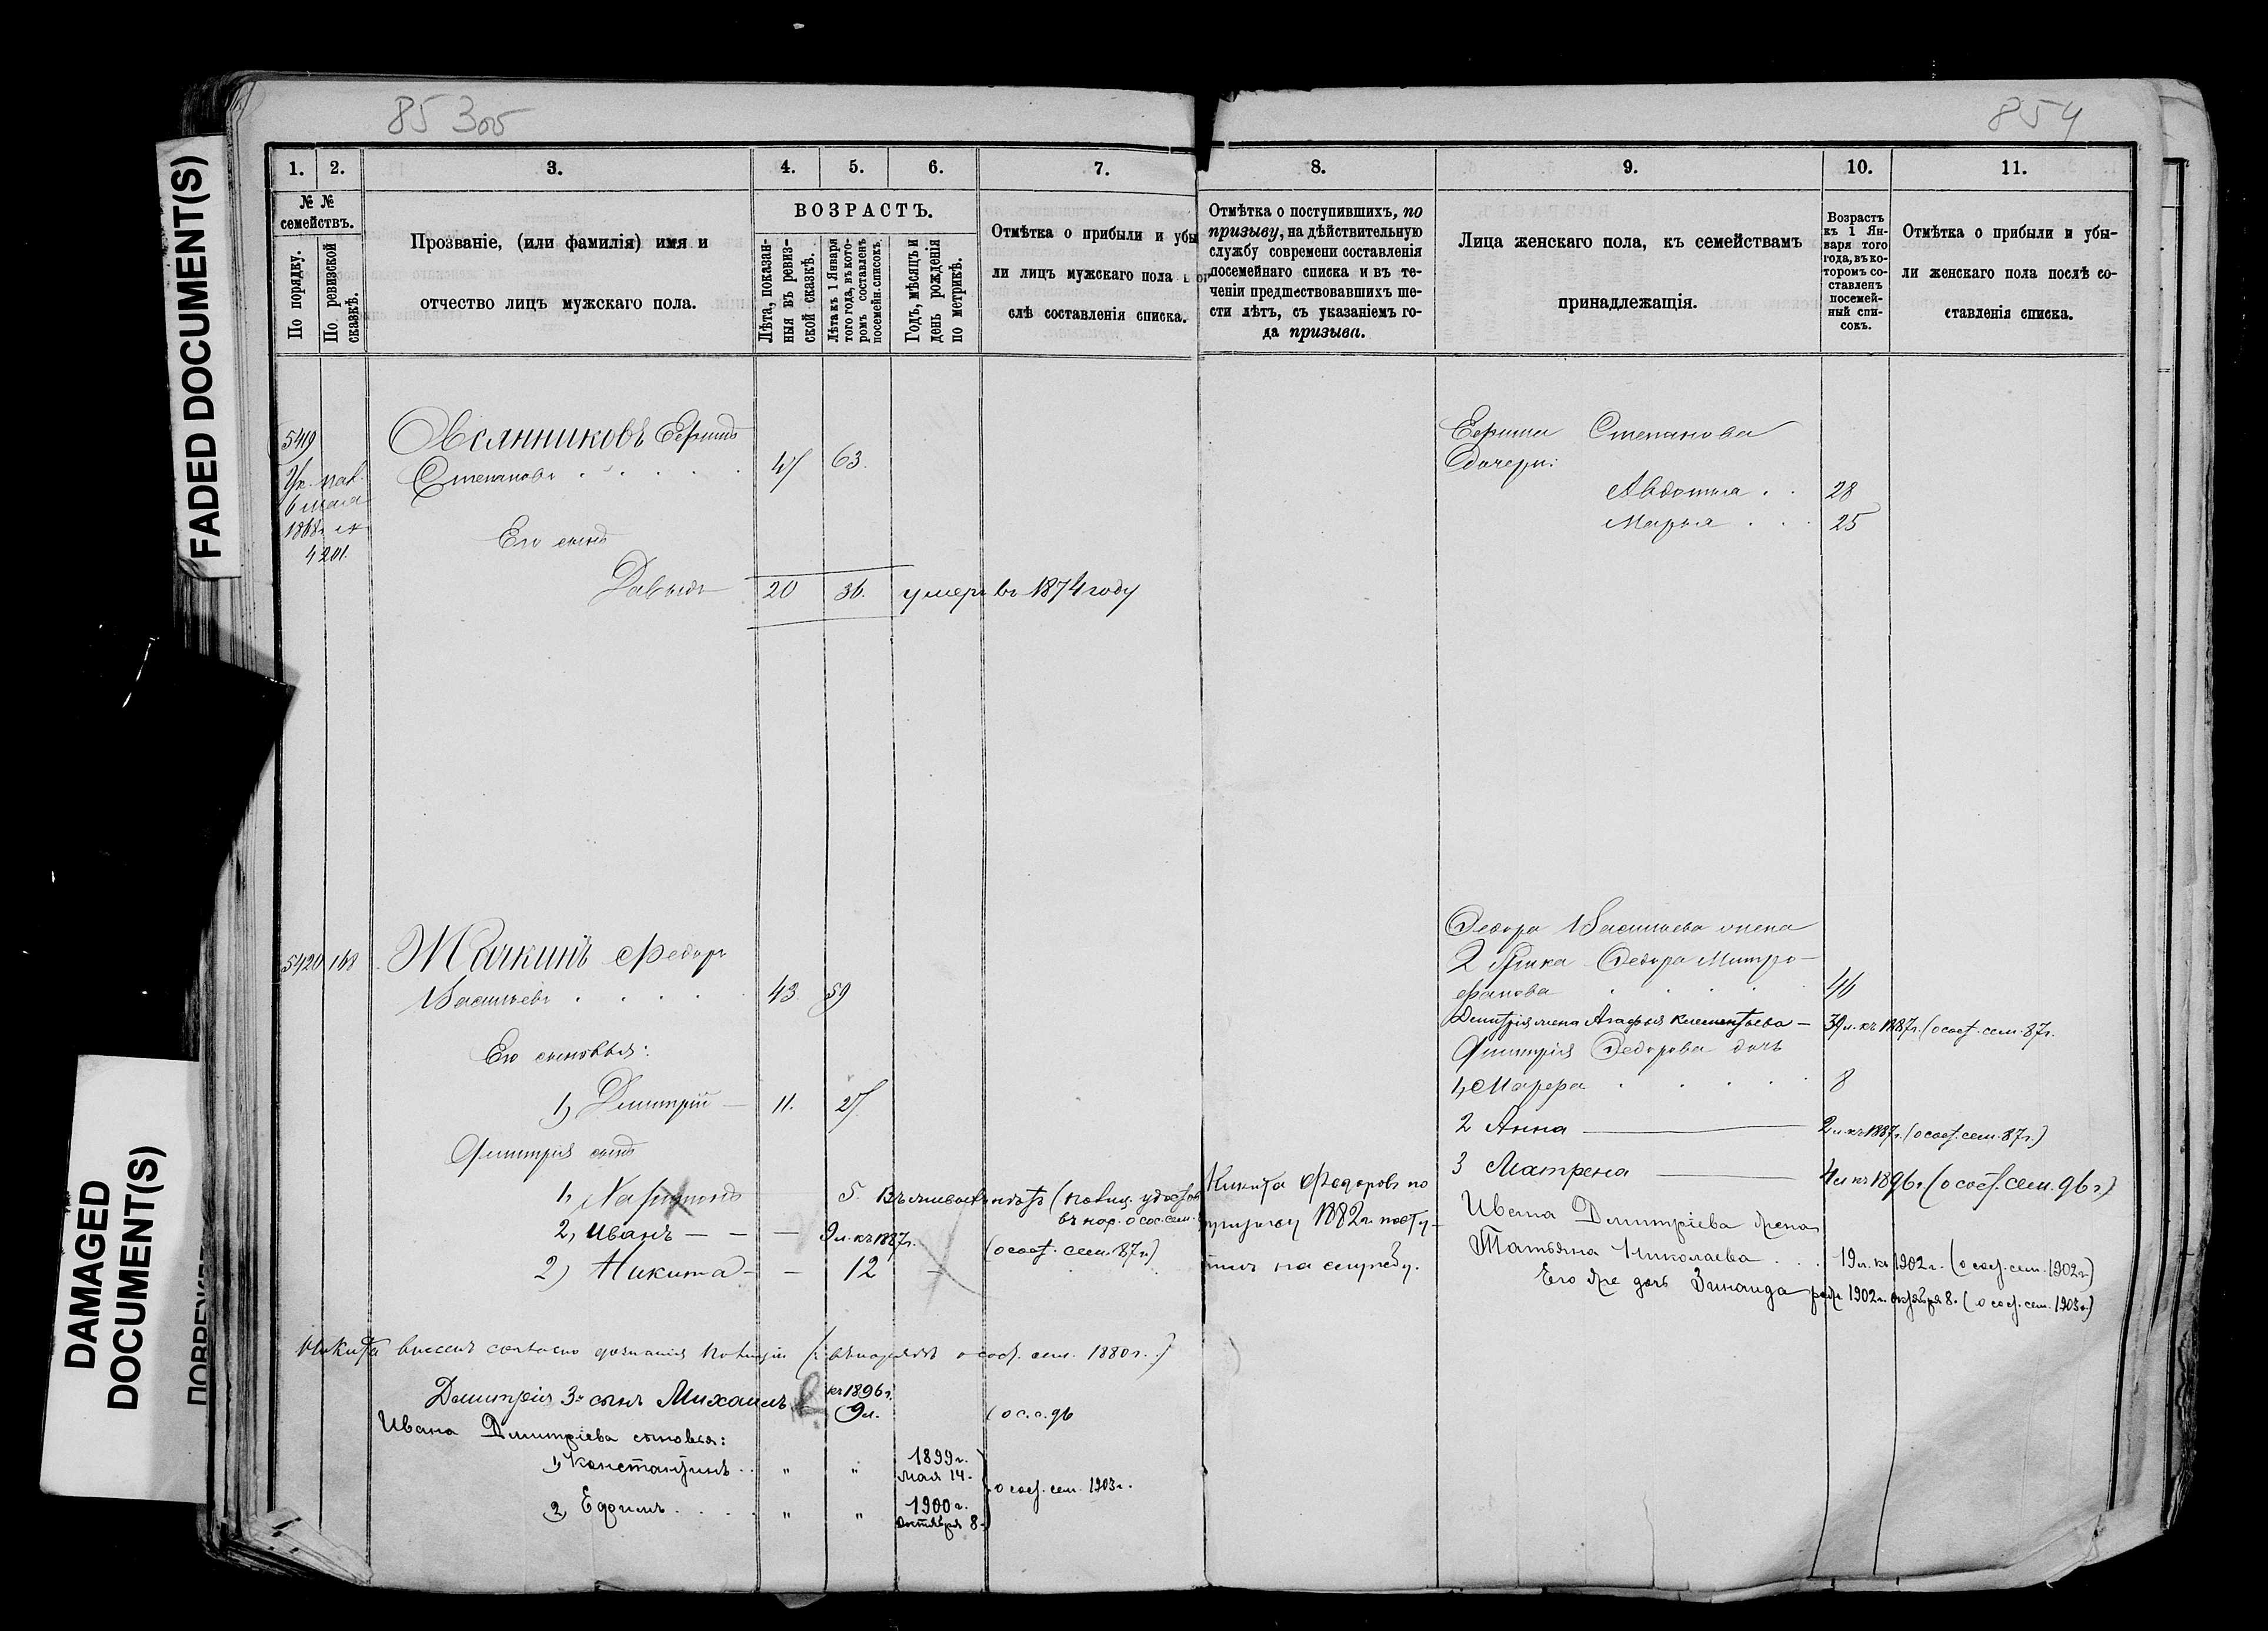 85 300
854
FADED DOCUMENT(S)
DAMAGED
DOCUMENT(S)
1. 2. 3. 4. 5. 6. 7.
№ №
семействъ.
По порядку.
По ревизской
сказкѣ.
Прозваніе, (или фамилія) имя и
отчество лицъ мужскаго пола.
ВОЗРАСТЪ.
Лѣта, показан-
ныя въ ревиз-
ской сказкѣ.
Лѣта къ 1 Января
того года, въ кото-
ромъ составленъ
посемейн. списокъ.
Годъ, мѣсяцъ и
день рожденія
по метрикѣ.
Отмѣтка о прибыли и убы
ли лицъ мужскаго пола
слѣ составленія списка.
5419
6 мая
4201.
Овсянниковъ Ефимъ
Степановъ . . . . . 47 63.
Его сынъ
Давыдъ 20 36. умеръ въ 1874 году
5420 168
Жачкинъ Федоръ
Васильевъ . . . . . 43 59
Его сыновья:
1) Димитрій — 11. 27
Димитрія сынъ
1, 5.
2, Иванъ — — — 9 л. къ 1887 г. (о сост. сем. 87 г.)
2) Никита — — 12 —
Никита внесенъ согласно дознанія полиціи (о сост. сем. 1880 г.)
Димитрія 3й сынъ Михаилъ къ 1896 г.
9 л. (о с. с. 96
Ивана Димитріева сыновья:
1) Константинъ . . " " 1899 г.
мая 14.
2, Ефимъ . . . . " " 1900 г.
октября 8.
о сост. сем. 1903 г.
8. 9. 10. 11.
Отмѣтка о поступившихъ, по
призыву, на дѣйствительную
службу современи составленія
посемейнаго списка и въ те-
ченіи предшествовавшихъ ше-
сти лѣтъ, съ указаніемъ го-
да призыва.
Лица женскаго пола, къ семействамъ
принадлежащія.
Возрастъ
къ 1 Ян-
варя того
года, въ ко-
торомъ со-
ставленъ
посемей-
ный спи-
сокъ.
Отмѣтка о прибыли и убы-
ли женскаго пола послѣ со-
ставленія списка.
Ефима Степанова
дочери:
Авдотья . . 28
Марья . . . 25
Федора Васильева жена
Федора Митро-
фанова . . . . . 46
Димитрія жена Агафья Клементьева — 39 л. къ 1887 г. (о сост. сем. 87 г.
Димитрія Федорова дочь
1, Марфа . . . . . 8
2 Анна — 2 л. къ 1887 г. (о сост. сем. 87 г.)
3 Матрена — 4 л. къ 1896 г. (о сост. сем. 96 г.)
Никита Федоровъ по
призыву 1882 г. посту-
пилъ на службу.
Ивана Димитріева жена
Татьяна Николаева . . . 19 л. къ 1902 г. (о сост. сем. 1902 г.)
Его же дочь Зинаида род. 1902 г. октября 8. (о сост. сем. 1903 г.)